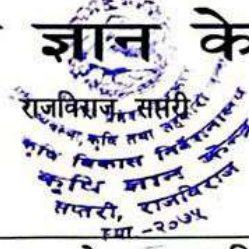 ज्ञान के
राजविराज, सप्तरी
कृषि तथा
कृषि विकास निर्देशनालय
कृषि ज्ञान केन्द्र
सप्तरी, राजविराज
स्था -२०७५